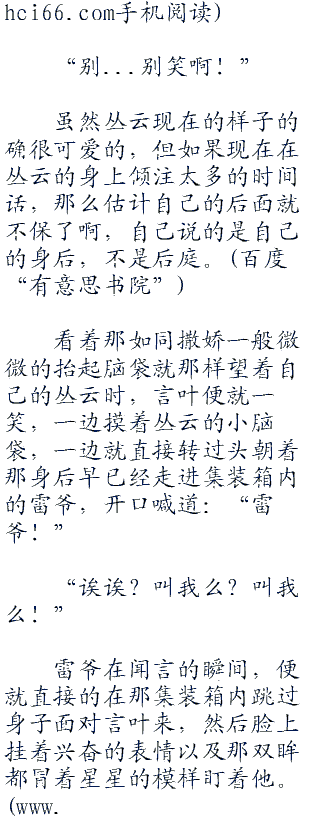 hci66.com手机阅读)
“别...别笑啊!”
虽然丛云现在的样子的
确很可爱的，但如果现在在
丛云的身上倾注太多的时间
话，那么估计自己的后面就
不保了啊，自己说的是自己
的身后，不是后庭。(百度
“有意思书院”)
看着那如同撒娇一般微
微的抬起脑袋就那样望着自
己的丛云时，言叶便就一
笑，一边摸着丛云的小脑
袋，一边就直接转过头朝着
那身后早已经走进集装箱内
的雷爷，开口喊道：“雷
爷!”
“诶诶？叫我么？叫我
么!”
雷爷在闻言的瞬间，便
就直接的在那集装箱内跳过
身子面对言叶来，然后脸上
挂着兴奋的表情以及那双眸
都冒着星星的模样盯着他。
(www.